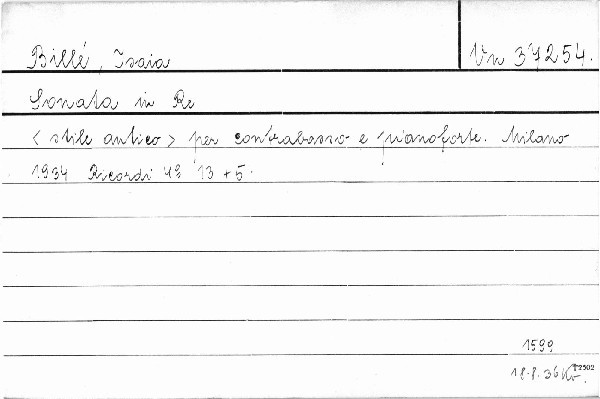 Billé, Isaia
Vn 37254.
Sonata in Re
< stile antico > per contrabasso e pianoforte. Milano
1934 Ricordi 4º 13 + 5.
1599
18.8.36 Kr.